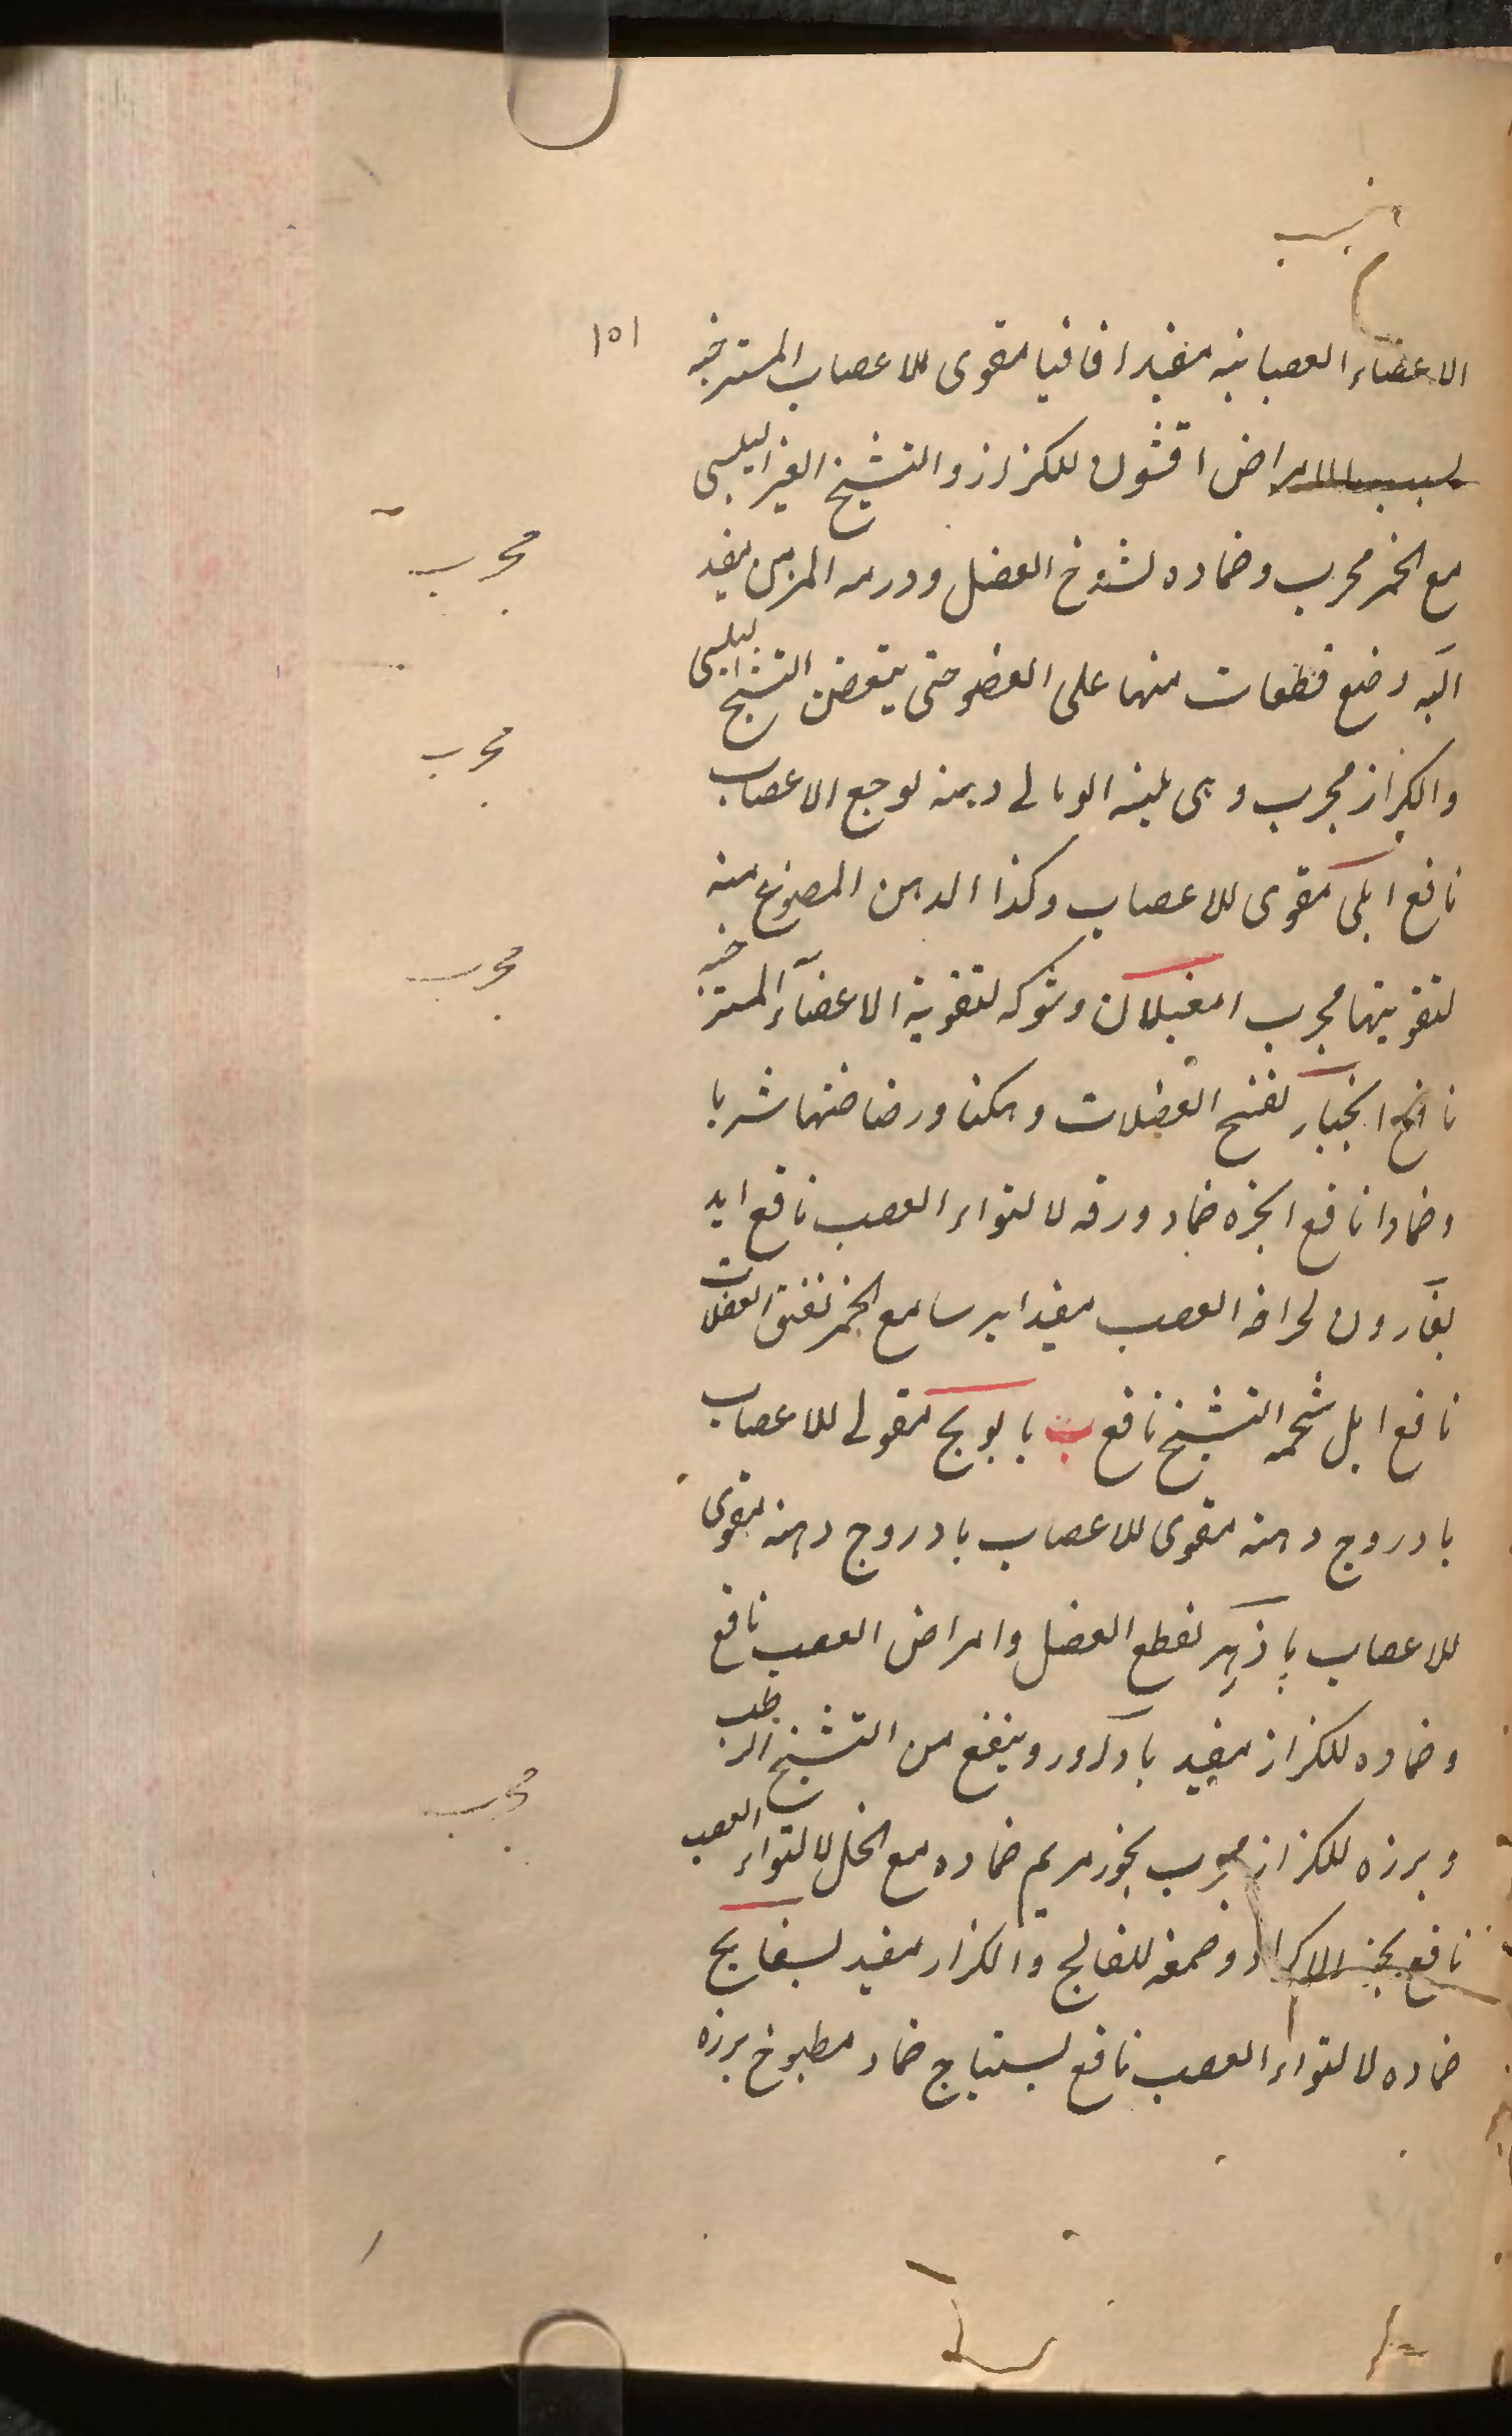 ١٥١
الاعضاء العصبانيه مفيد اقاقيا مقوى للاعصاب المسترخيه
بسبب الامراض اقشون للكزاز والتشنج الغير اليبسى
مع الخمر مجرب وضماده لشدخ العضل وورمه المزمن مفيد
مجرب
اليه وضع قطعات منها على العضو حتى يتعفن التشنج اليبسى
والكزاز مجرب وهى دهنه لوجع الاعصاب
مجرب
نافع املى مقوى للاعصاب وكذا الدهن المصنوع منه
لتقويتها مجرب امغيلان وشوكه لتقوية الاعضاء المسترخيه
مجرب
نافع انجبار لفتح العضلات وهكنا ورضاضتها شربا
وضمادا نافع انجره ضماد ورقه لالتواء العصب نافع ايد
يغارون لجراحه العصب مفيد ايرسا مع الخمر لفتق العضلات
نافع ابل شحمه التشنج نافع ب بابونج مقوى للاعصاب
بادروج دهنه مقوى للاعصاب بادروج دهنه مقوى
للاعصاب پاذهر لقطع العضل وامراض العصب نافع
وضماده للكزاز مفيد بادآورد وينفع من التشنج الرطب
وبرزه للكزاز مجرب بخور مريم ضماده مع الخل لالتواء العصب
مجرب
نافع بخور الاكراد وصمغه للفالج والكزاز مفيد بسفايج
ضماده لالتواء العصب نافع بستياج ضماد مطبوخ برزه